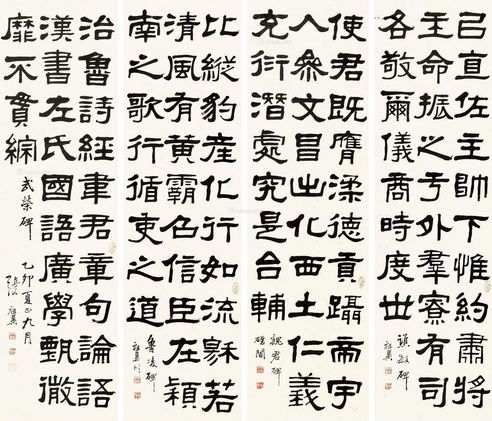 己直佐主帥下惟約肅將
王命振之于外羣寮有司
各敬爾儀商時度世
祖翼
使君既膺渘德貢躡帝宇
入參文昌出化西土仁義
充衍潛處究是台輔
魏君碑
比縱豹產化行如流穌若
清風有黃霸召信臣在潁
南之歌行循吏之道
魯峻碑
祖翼
治魯詩經韋君章句論語
漢書左氏國語廣學甄微
靡不貫綜
武榮碑
乙卯夏正九月
張祖翼